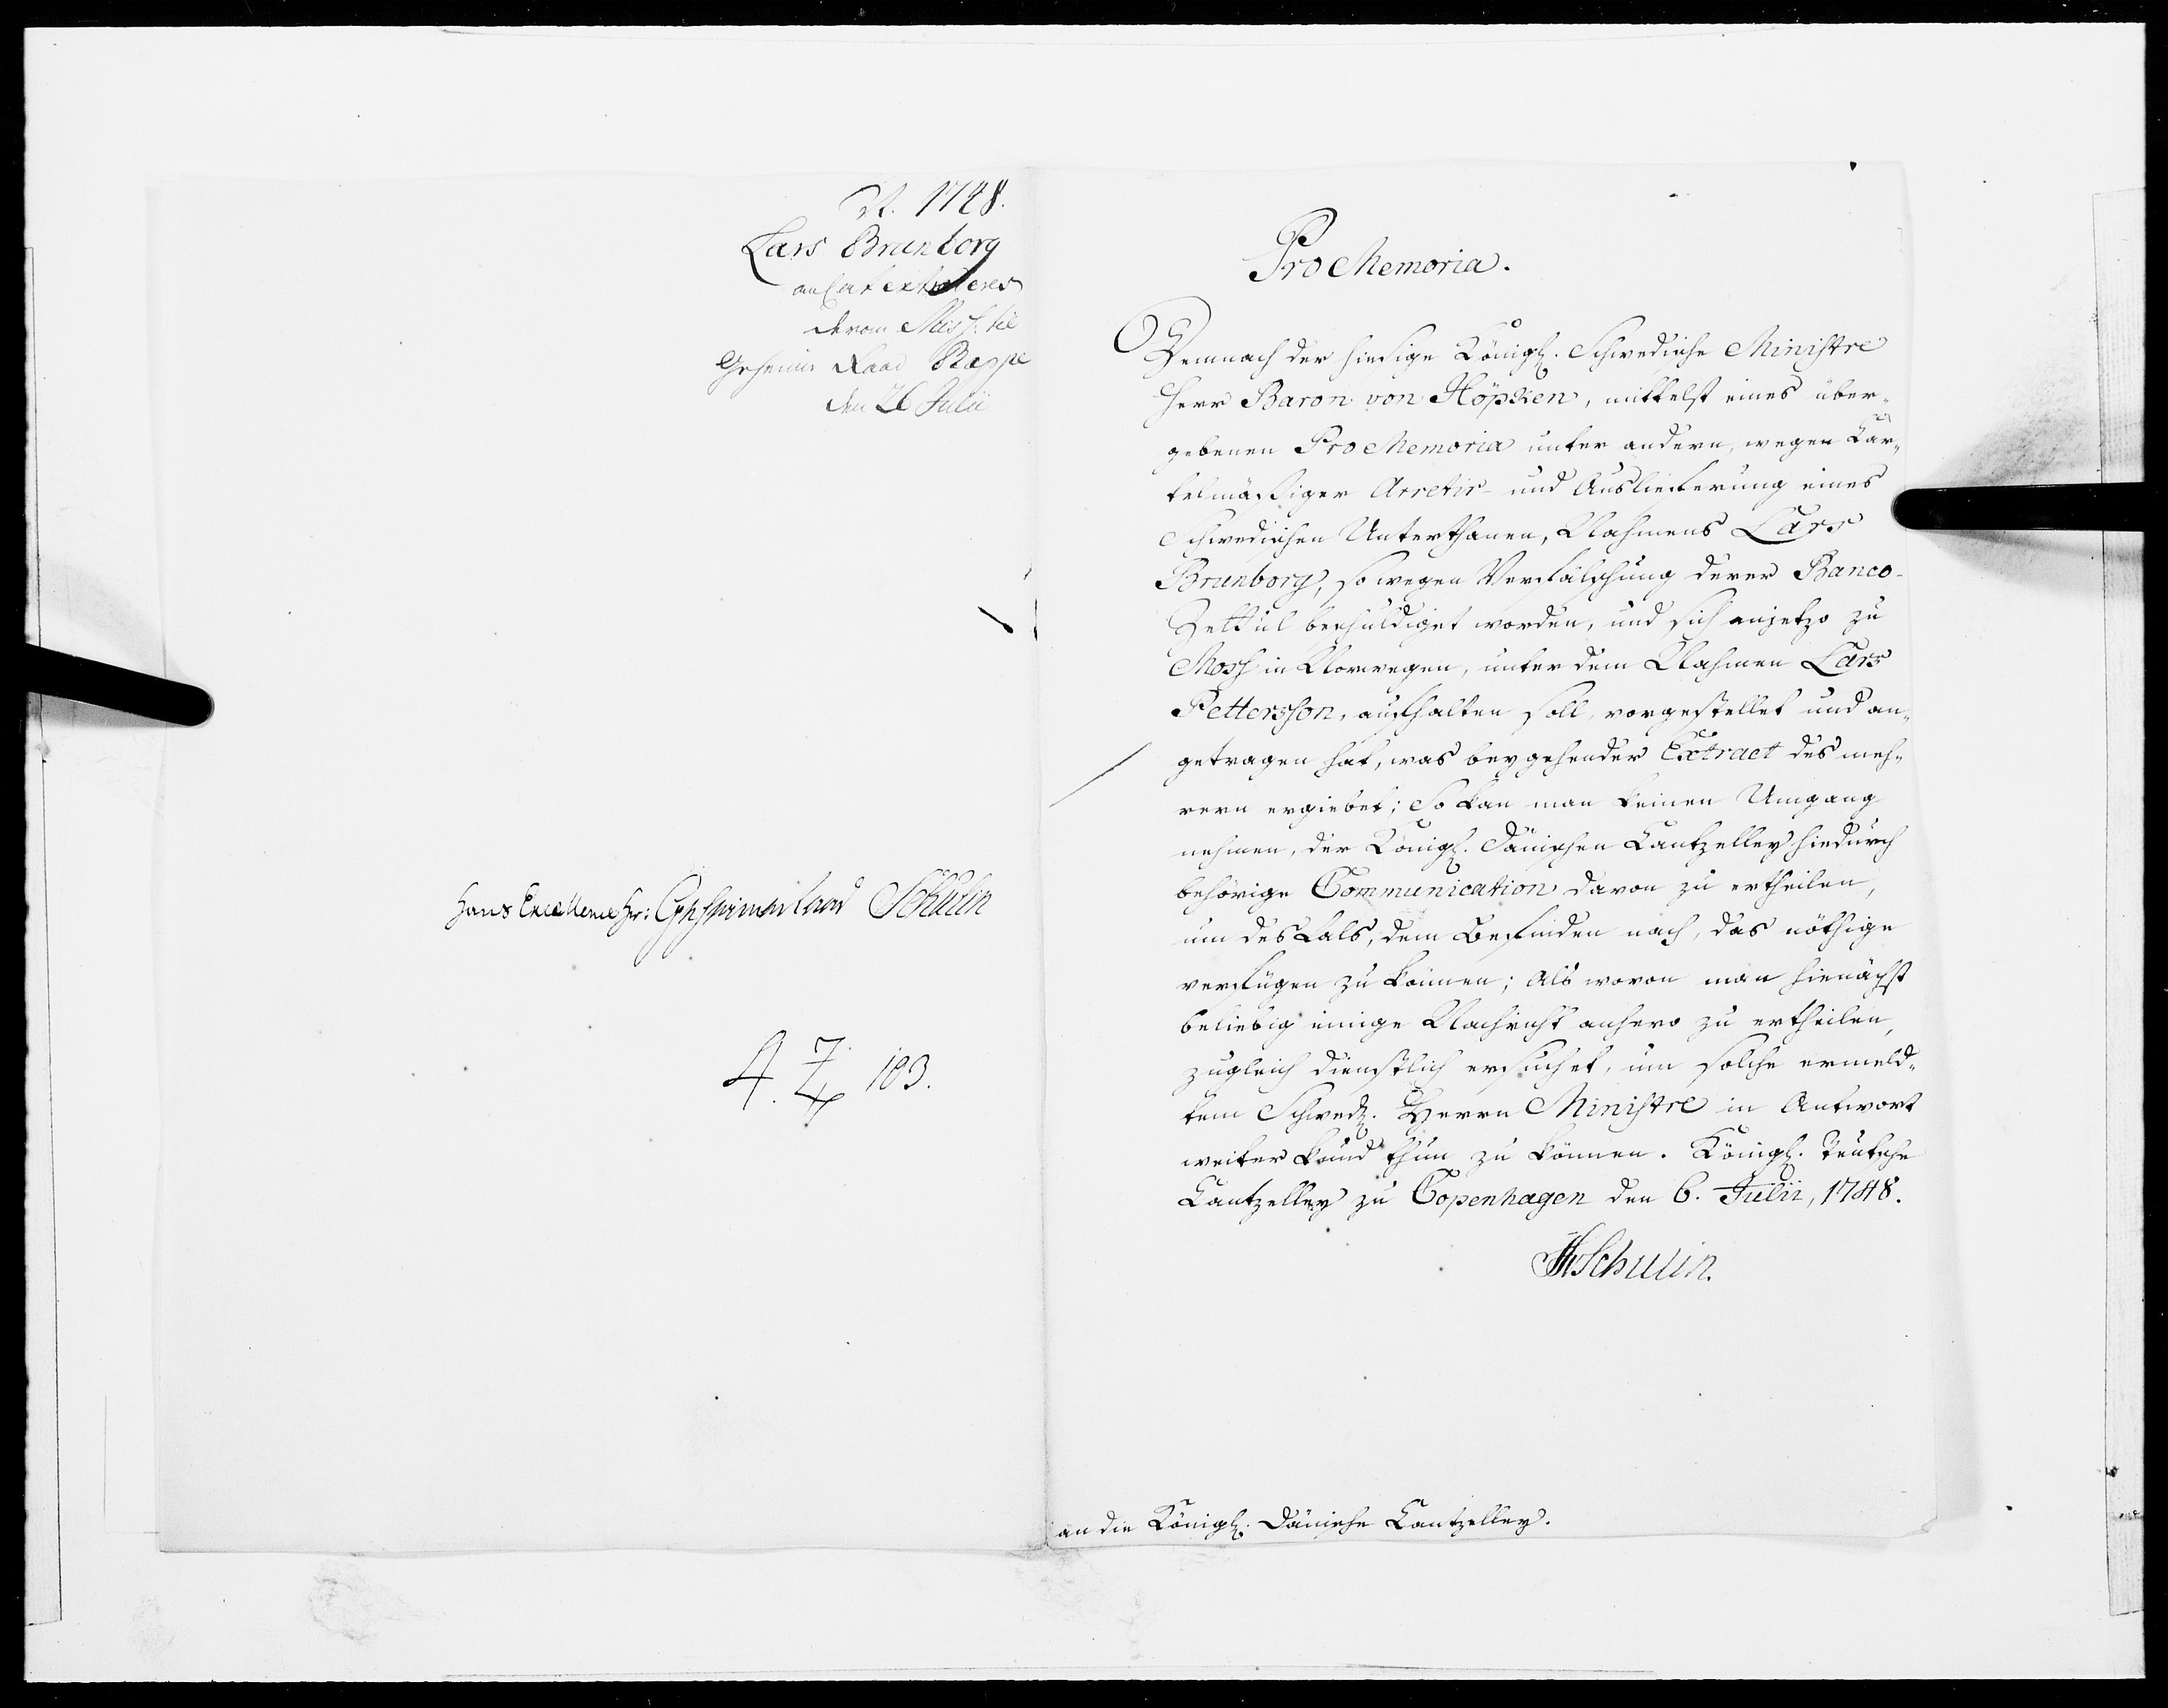 1748.
Lars Brunborg
ang. at extraderes
derom Miss. til
Geheime Raad Rappe
den 26 Julii
Hans Excellence Hr: Geheimeraad Schulin
4. 7/4 183.
Pro Memoria.
Demnach der hiesige Königl. Schwedische Ministre
Herr Baron von Höpken, mittelst eines über-
gebenen Pro Memoria unter andern, wegen Car-
telmäßiger Arretir- und Auslieferung eines
Schwedischen Unterthanen, Nahmens Lars
Brunborg, so wegen Verfälschung derer Banco-
Zettul beschuldiget worden, und sich anjetzo zu
Moss in Norwegen, unter dem Nahmen Lars
Pettersson, aufhalten soll, vorgestellet und an-
getragen hat, was beygehender Extract des meh-
rern ergiebet; So kan man keinen Umgang
nehmen, der Königl. Dänischen Cantzelley hiedurch
behörige Communication davon zu ertheilen,
um desfals, dem Befinden nach, das nöthige
verfügen zu können; Als wovon man hienächst
beliebig einige Nachricht anhero zu ertheilen,
zugleich dienstlich ersuchet, um solche ermeld-
tem Schwed. Herrn Ministre in Antwort
weiter kund thun zu können. Königl. Teutsche
Cantzelley zu Copenhagen den 6. Julii, 1748.
JHSchulin.
an die Königl. Dänische Cantzelley.